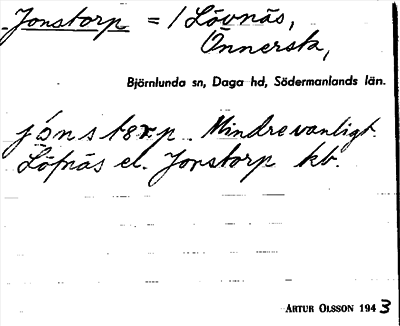 Jonstorp = / Lövnäs,
Önnersta,
Björnlunda sn, Daga hd, Södermanlands län.
jónstorp. Mindre vanligt.
Löfnäs el. Jonstorp kb.
ARTUR OLSSON 1943